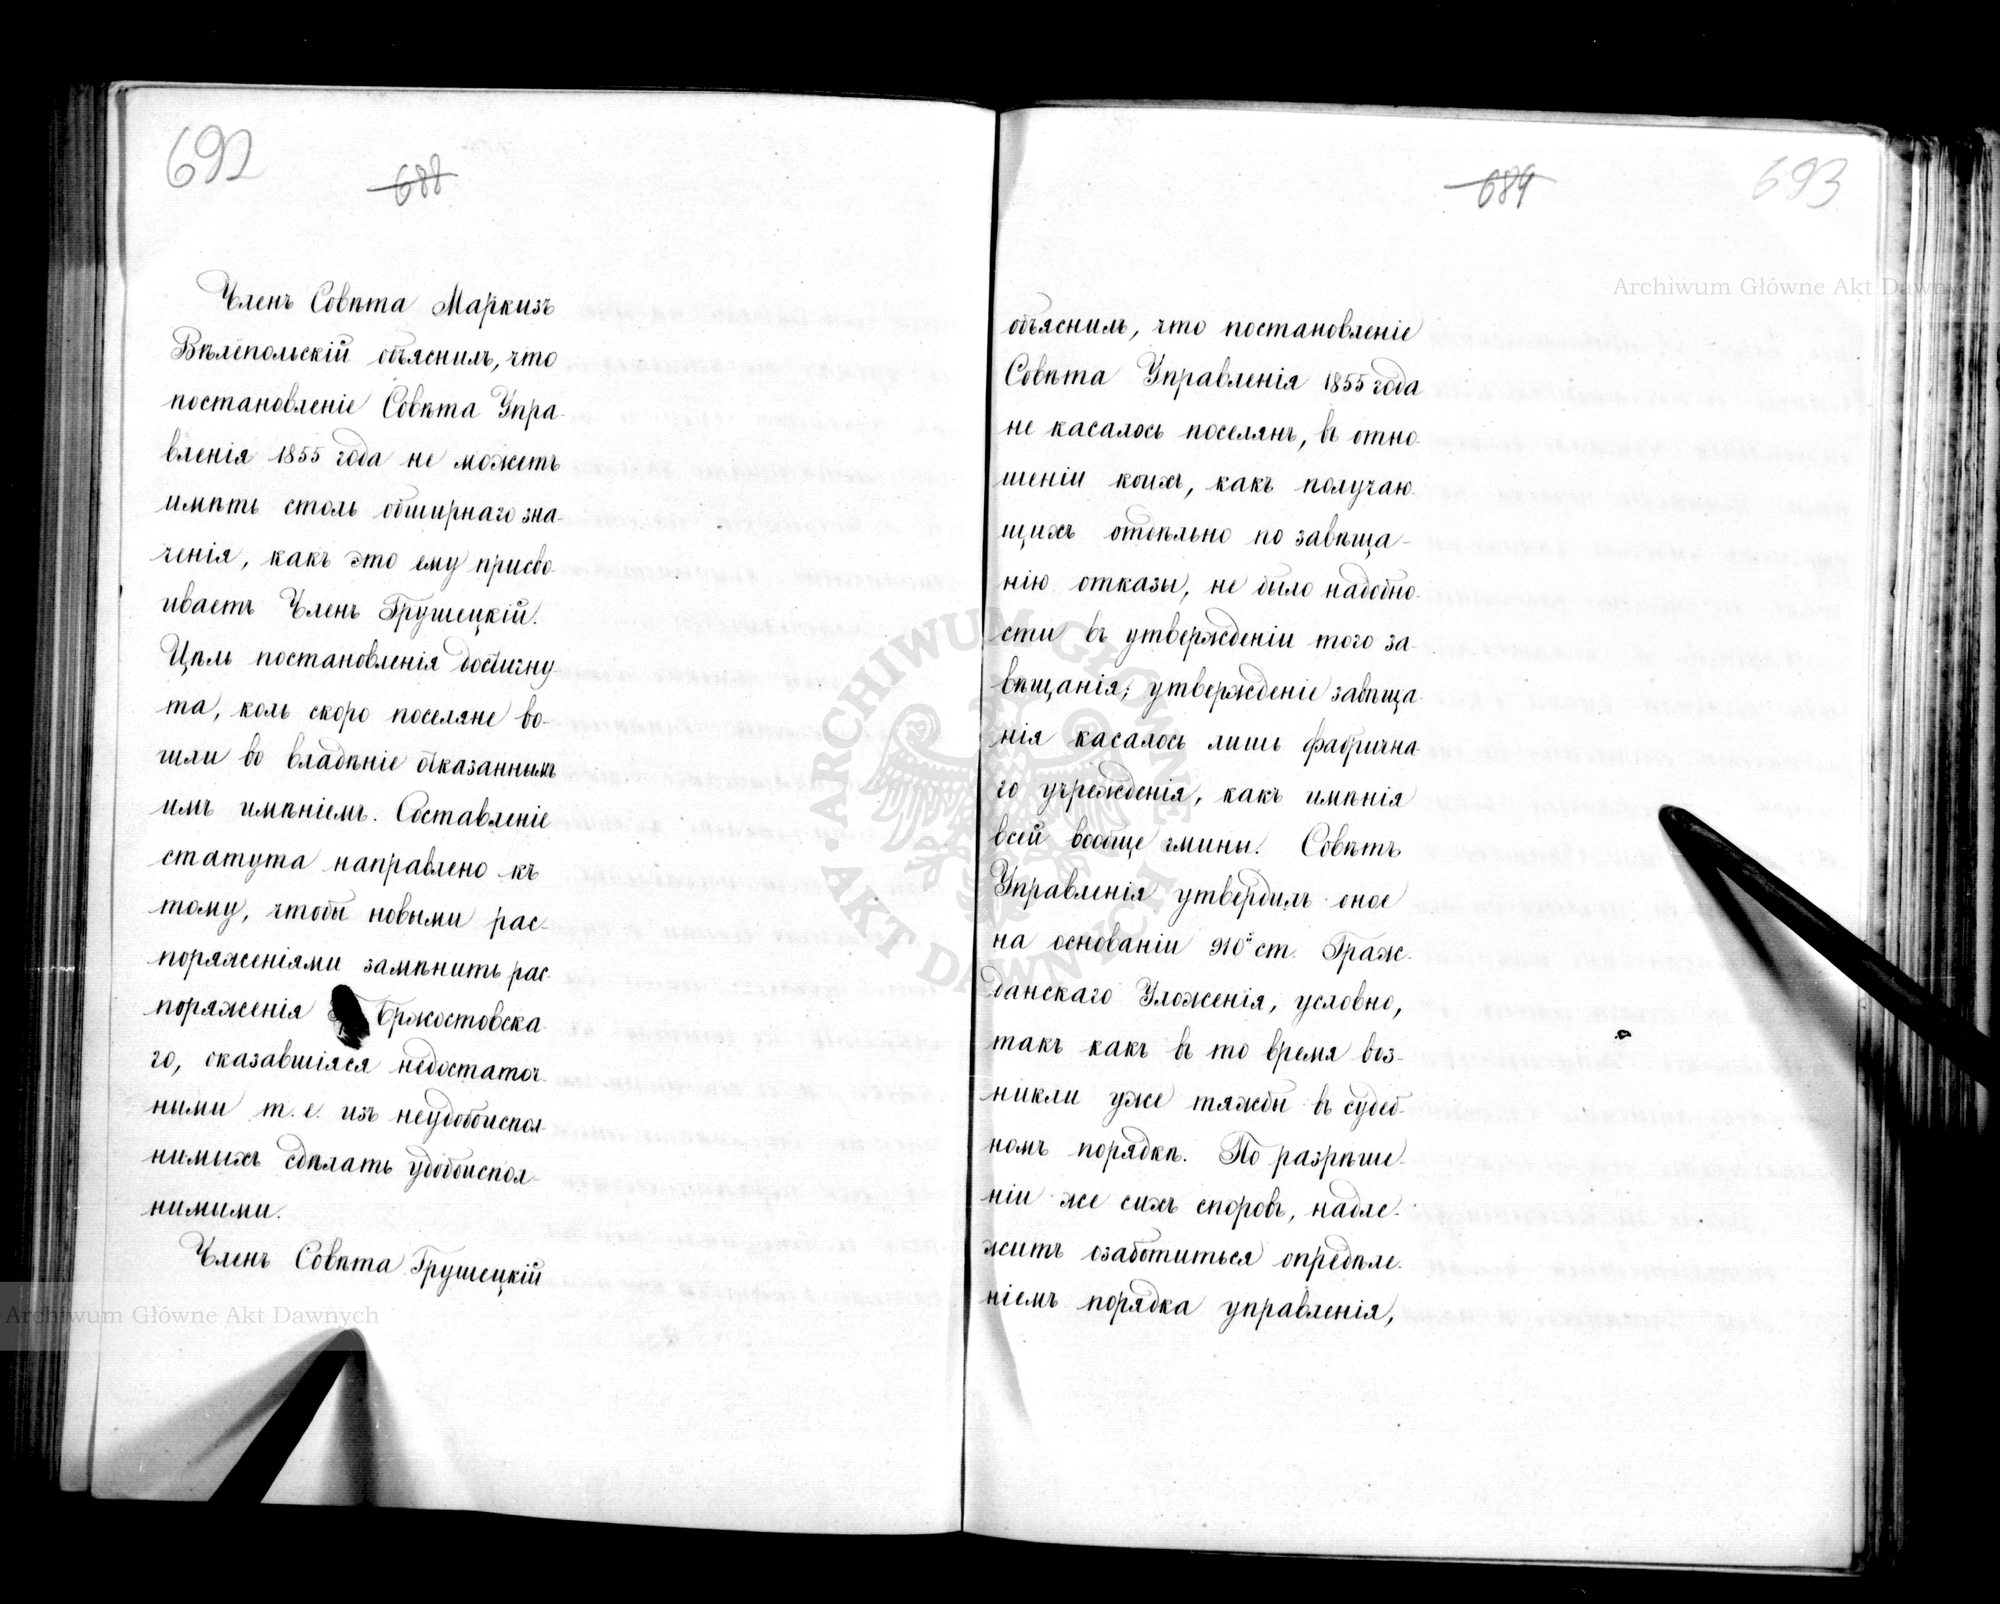 692
688
Членъ Совѣта Маркизъ
Вѣлепольскій объяснилъ, что
постановленіе Совѣта Упра-
вленія 1855 года не можетъ
имѣть столь обширнаго зна-
ченія, какъ это ему присво-
иваетъ Членъ Грушецкій.
Цѣль постановленія достигну-
та, коль скоро поселяне во-
шли во владѣніе отказаннымъ
имъ имѣніемъ. Составленіе
статута направлено къ
тому, чтобы новыми рас-
поряженіями замѣнить рас-
поряженія Бржостовска-
го, оказавшіяся недостаточ-
ными т. е. изъ неудобоиспол-
нимыхъ сдѣлать удобоиспол-
нимыми.
Членъ Совѣта Грушецкій
689
693
объяснилъ, что постановленіе
Совѣта Управленія 1855 года
не касалось поселянъ, въ отно-
шеніи коихъ, какъ получаю-
щихъ отдѣльно по завѣща-
нію отказы, не было надобно-
сти въ утвержденіи того за-
вѣщанія; утвержденіе завѣща-
нія касалось лишь фабрична-
го учрежденія, какъ имѣнія
всей вообще гмины. Совѣтъ
Управленія утвердилъ оное
на основаніи 910й ст. Граж-
данскаго Уложенія, условно,
такъ какъ въ то время воз-
никли уже тяжбы въ судеб-
номъ порядкѣ. По разрѣше-
ніи же сихъ споровъ, надле-
житъ озаботиться опредѣле-
ніемъ порядка управленія,
Archiwum Główne Akt Dawnych
Archiwum Główne Akt Dawnych
ARCHIWUM GŁÓWNE AKT DAWNYCH